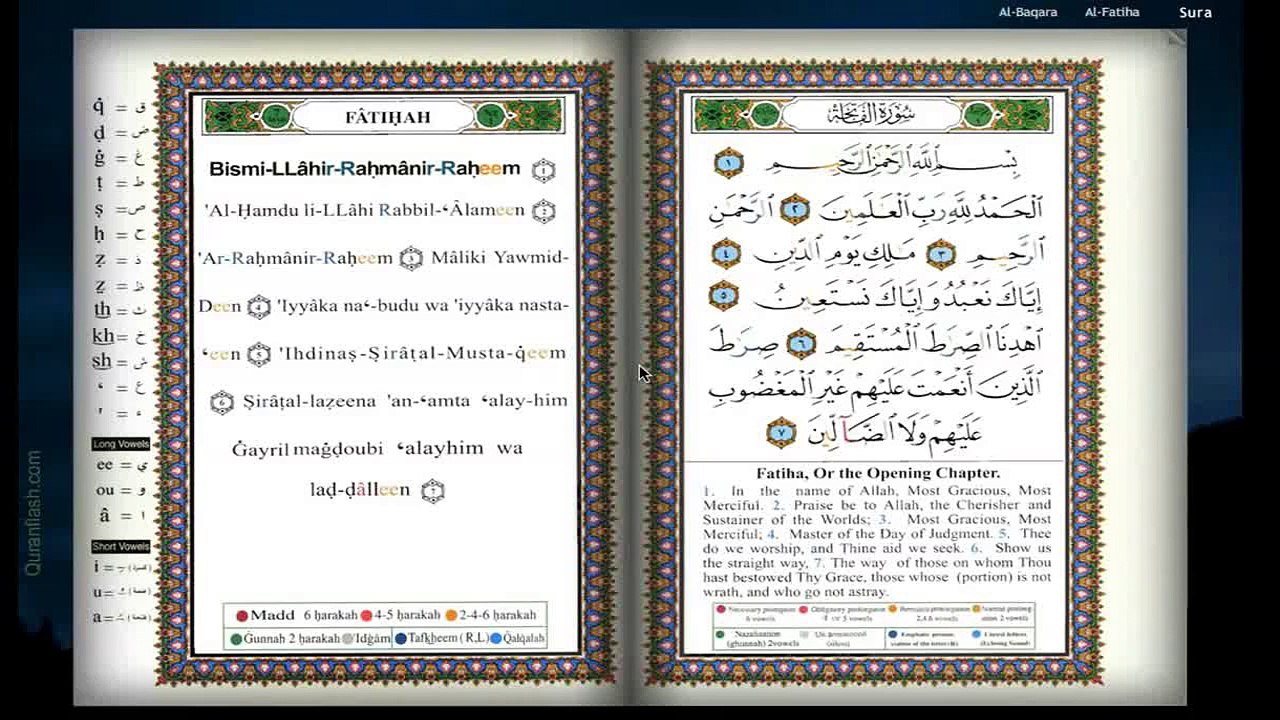 Al-Baqara Al-Fatiha Sura
q̇ = ق
ḍ = ض
ġ = غ
ṭ = ط
ṣ = ص
ḥ = ح
ẓ = ذ
ẓ = ظ
th = ث
kh = خ
sh = ش
‘ = ع
' = ء
Long Vowels
ee = ي
ou = و
â = ا
Short Vowels
i =
u =
a =
Quranflash.com
FÂTIḤAH
Bismi-LLâhir-Raḥmânir-Raḥeem ١
'Al-Ḥamdu li-LLâhi Rabbil-‘Âlameen ٢
'Ar-Raḥmânir-Raḥeem ٣ Mâliki Yawmid-
Deen ٤ 'Iyyâka na‘-budu wa 'iyyâka nasta-
‘een ٥ 'Ihdinaṣ-Ṣirâṭal-Musta-q̇eem
٦ Ṣirâṭal-laẓeena 'an-‘amta ‘alay-him
Ġayril maġḍoubi ‘alayhim wa
laḍ-ḍâlleen ٧
Madd 6 ḥarakah 4-5 ḥarakah 2-4-6 ḥarakah
Ġunnah 2 ḥarakah Idġâm Tafkheem (R,L) Q̇alq̇alah
سُورَةُ الْفَاتِحَةِ
بِسْمِ اللَّهِ الرَّحْمَٰنِ الرَّحِيمِ ١
الْحَمْدُ لِلَّهِ رَبِّ الْعَٰلَمِينَ ٢ الرَّحْمَٰنِ
الرَّحِيمِ ٣ مَٰلِكِ يَوْمِ الدِّينِ ٤
إِيَّاكَ نَعْبُدُ وَإِيَّاكَ نَسْتَعِينُ ٥
اهْدِنَا الصِّرَٰطَ الْمُسْتَقِيمَ ٦ صِرَٰطَ
الَّذِينَ أَنْعَمْتَ عَلَيْهِمْ غَيْرِ الْمَغْضُوبِ
عَلَيْهِمْ وَلَا الضَّآلِّينَ ٧
Fatiha, Or the Opening Chapter.
1. In the name of Allah, Most Gracious, Most
Merciful. 2. Praise be to Allah, the Cherisher and
Sustainer of the Worlds; 3. Most Gracious, Most
Merciful; 4. Master of the Day of Judgment. 5. Thee
do we worship, and Thine aid we seek. 6. Show us
the straight way, 7. The way of those on whom Thou
hast bestowed Thy Grace, those whose (portion) is not
wrath, and who go not astray.
Necessary prolongation Obligatory prolongation Permissible prolongation Normal prolong.
6 vowels 4 or 5 vowels 2,4,6 vowels 2 vowels
Nazalization Un announced Emphatic
(ghunnah) 2 vowels (silent)